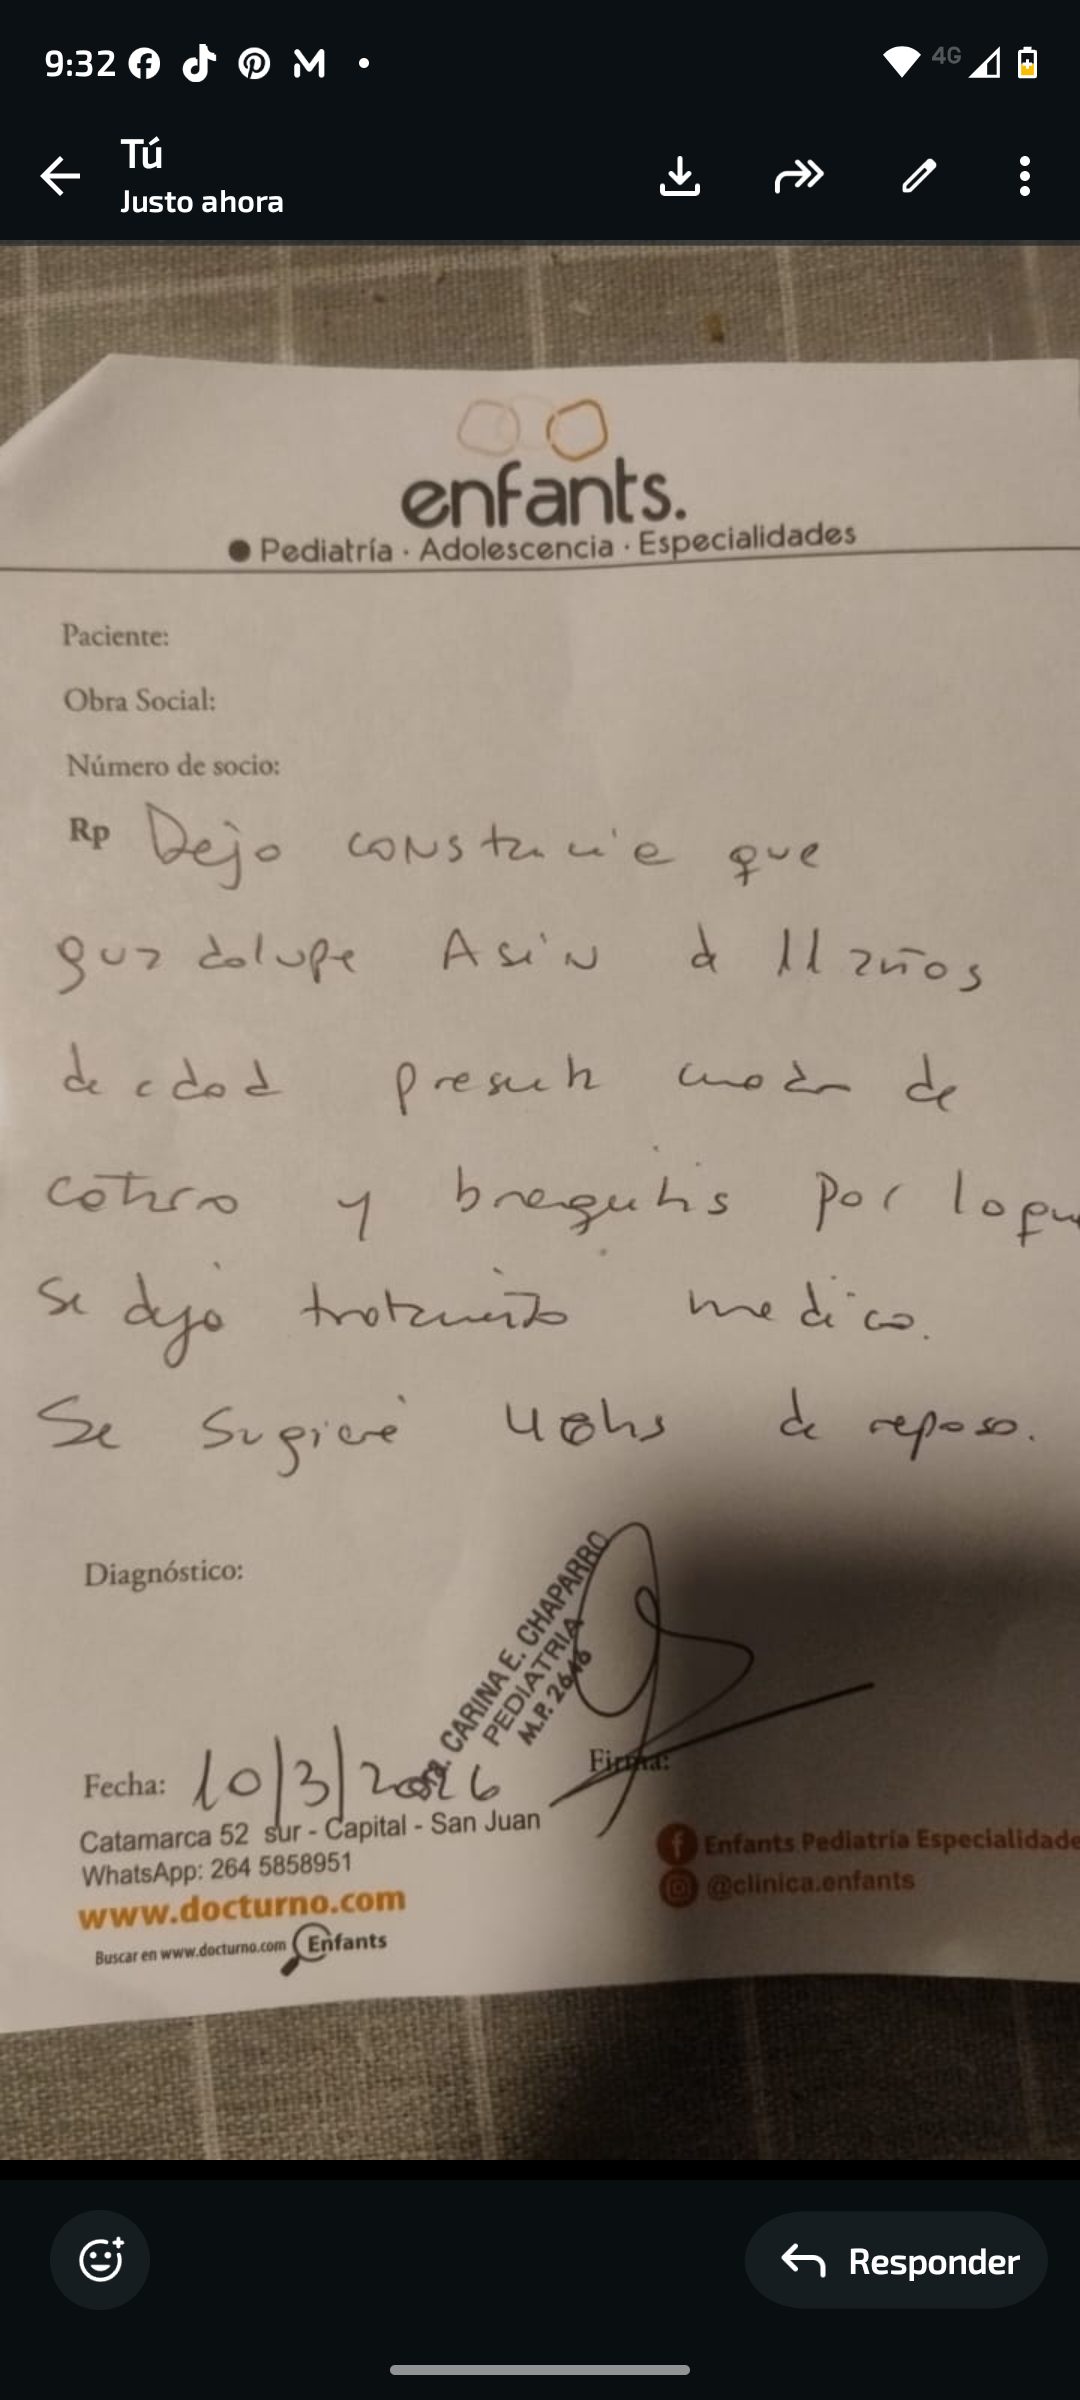 9:32
4G
Tú
Justo ahora
enfants.
Pediatría · Adolescencia · Especialidades
Paciente:
Obra Social:
Número de socio:
Rp Dejo constancia que
guadalupe Asin de 11 años
de edad presenta cuadro de
catarro y bronquitis por lo que
se dejo tratamiento medico.
Se sugiere 48hs de reposo.
Diagnóstico:
Dra. CARINA E. CHAPARRO
PEDIATRIA
M.P. 2646
Fecha: 10/3/2026
Firma:
Catamarca 52 sur - Capital - San Juan
WhatsApp: 264 5858951
www.docturno.com
Buscar en www.docturno.com Enfants
Enfants Pediatría Especialidade
@clinica.enfants
Responder